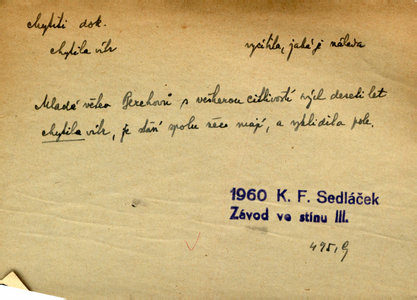 chytiti dok.
chytila vítr vycítila, jaká je nálada
Mladá věkem Perchová s veškerou citlivostí svých deseti let
chytila vítr, že staří spolu něco mají, a vyklidila pole.
1960 K. F. Sedláček
Závod ve stínu III.
495, G